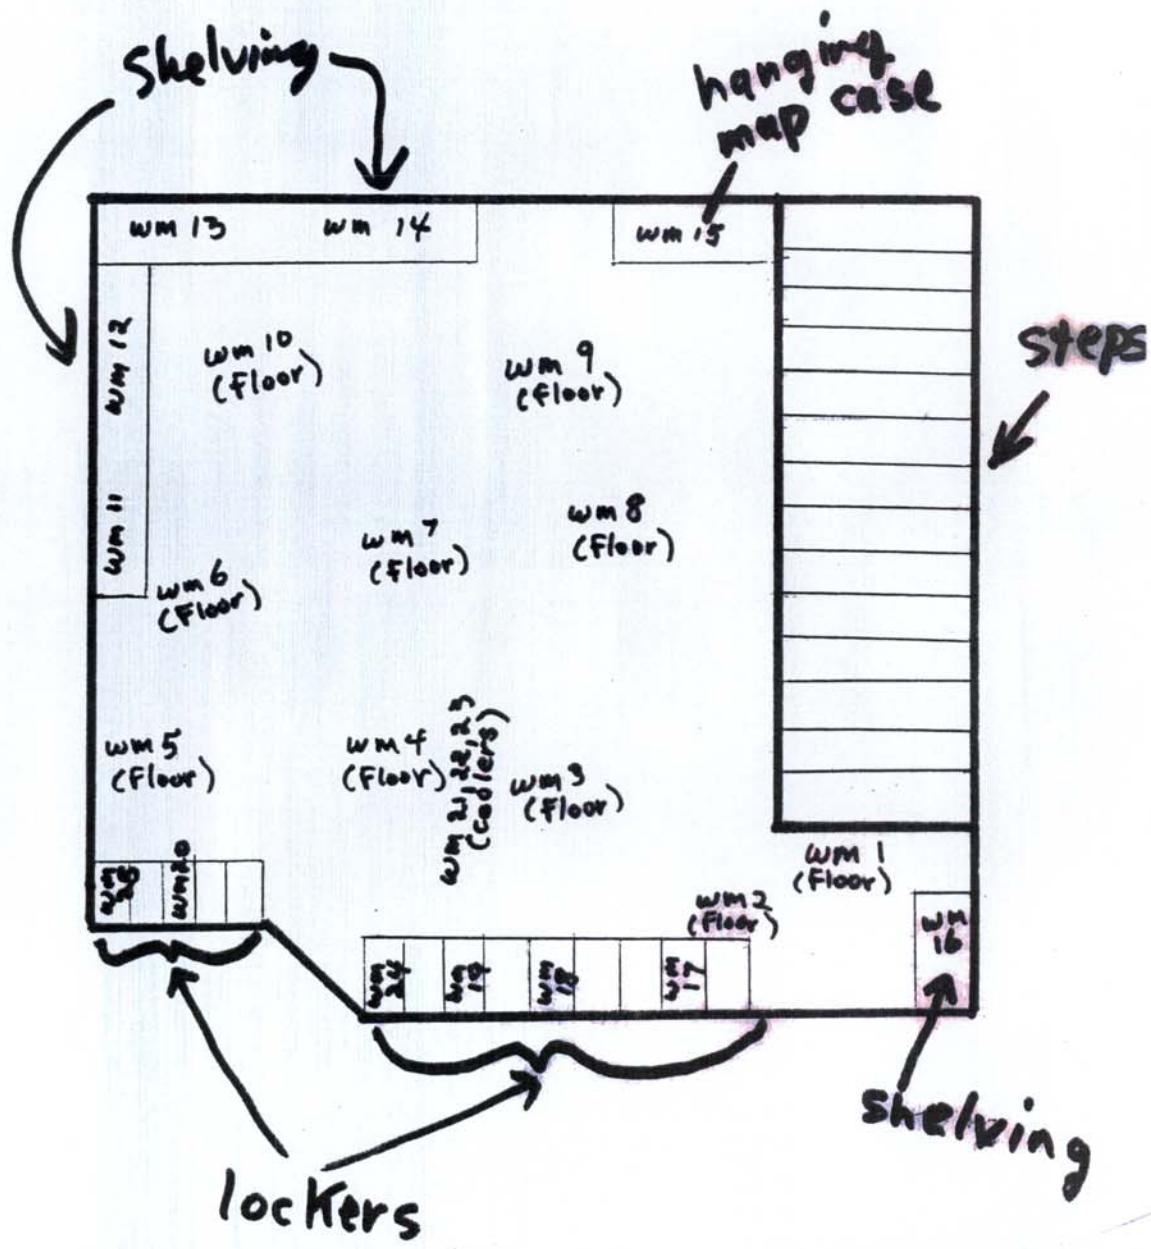 shelving
hanging
map case
wm 13
wm 14
wm 15
wm 12
wm 10
(floor)
wm 9
(floor)
steps
wm 11
wm 7
(floor)
wm 8
(floor)
wm 6
(floor)
wm 5
(floor)
wm 4
(floor)
wm 21, 22, 23
(coolers)
wm 3
(floor)
wm 1
(floor)
wm 2
(floor)
wm
wm 20
wm
16
wm
24
wm
19
wm
18
wm
17
shelving
lockers